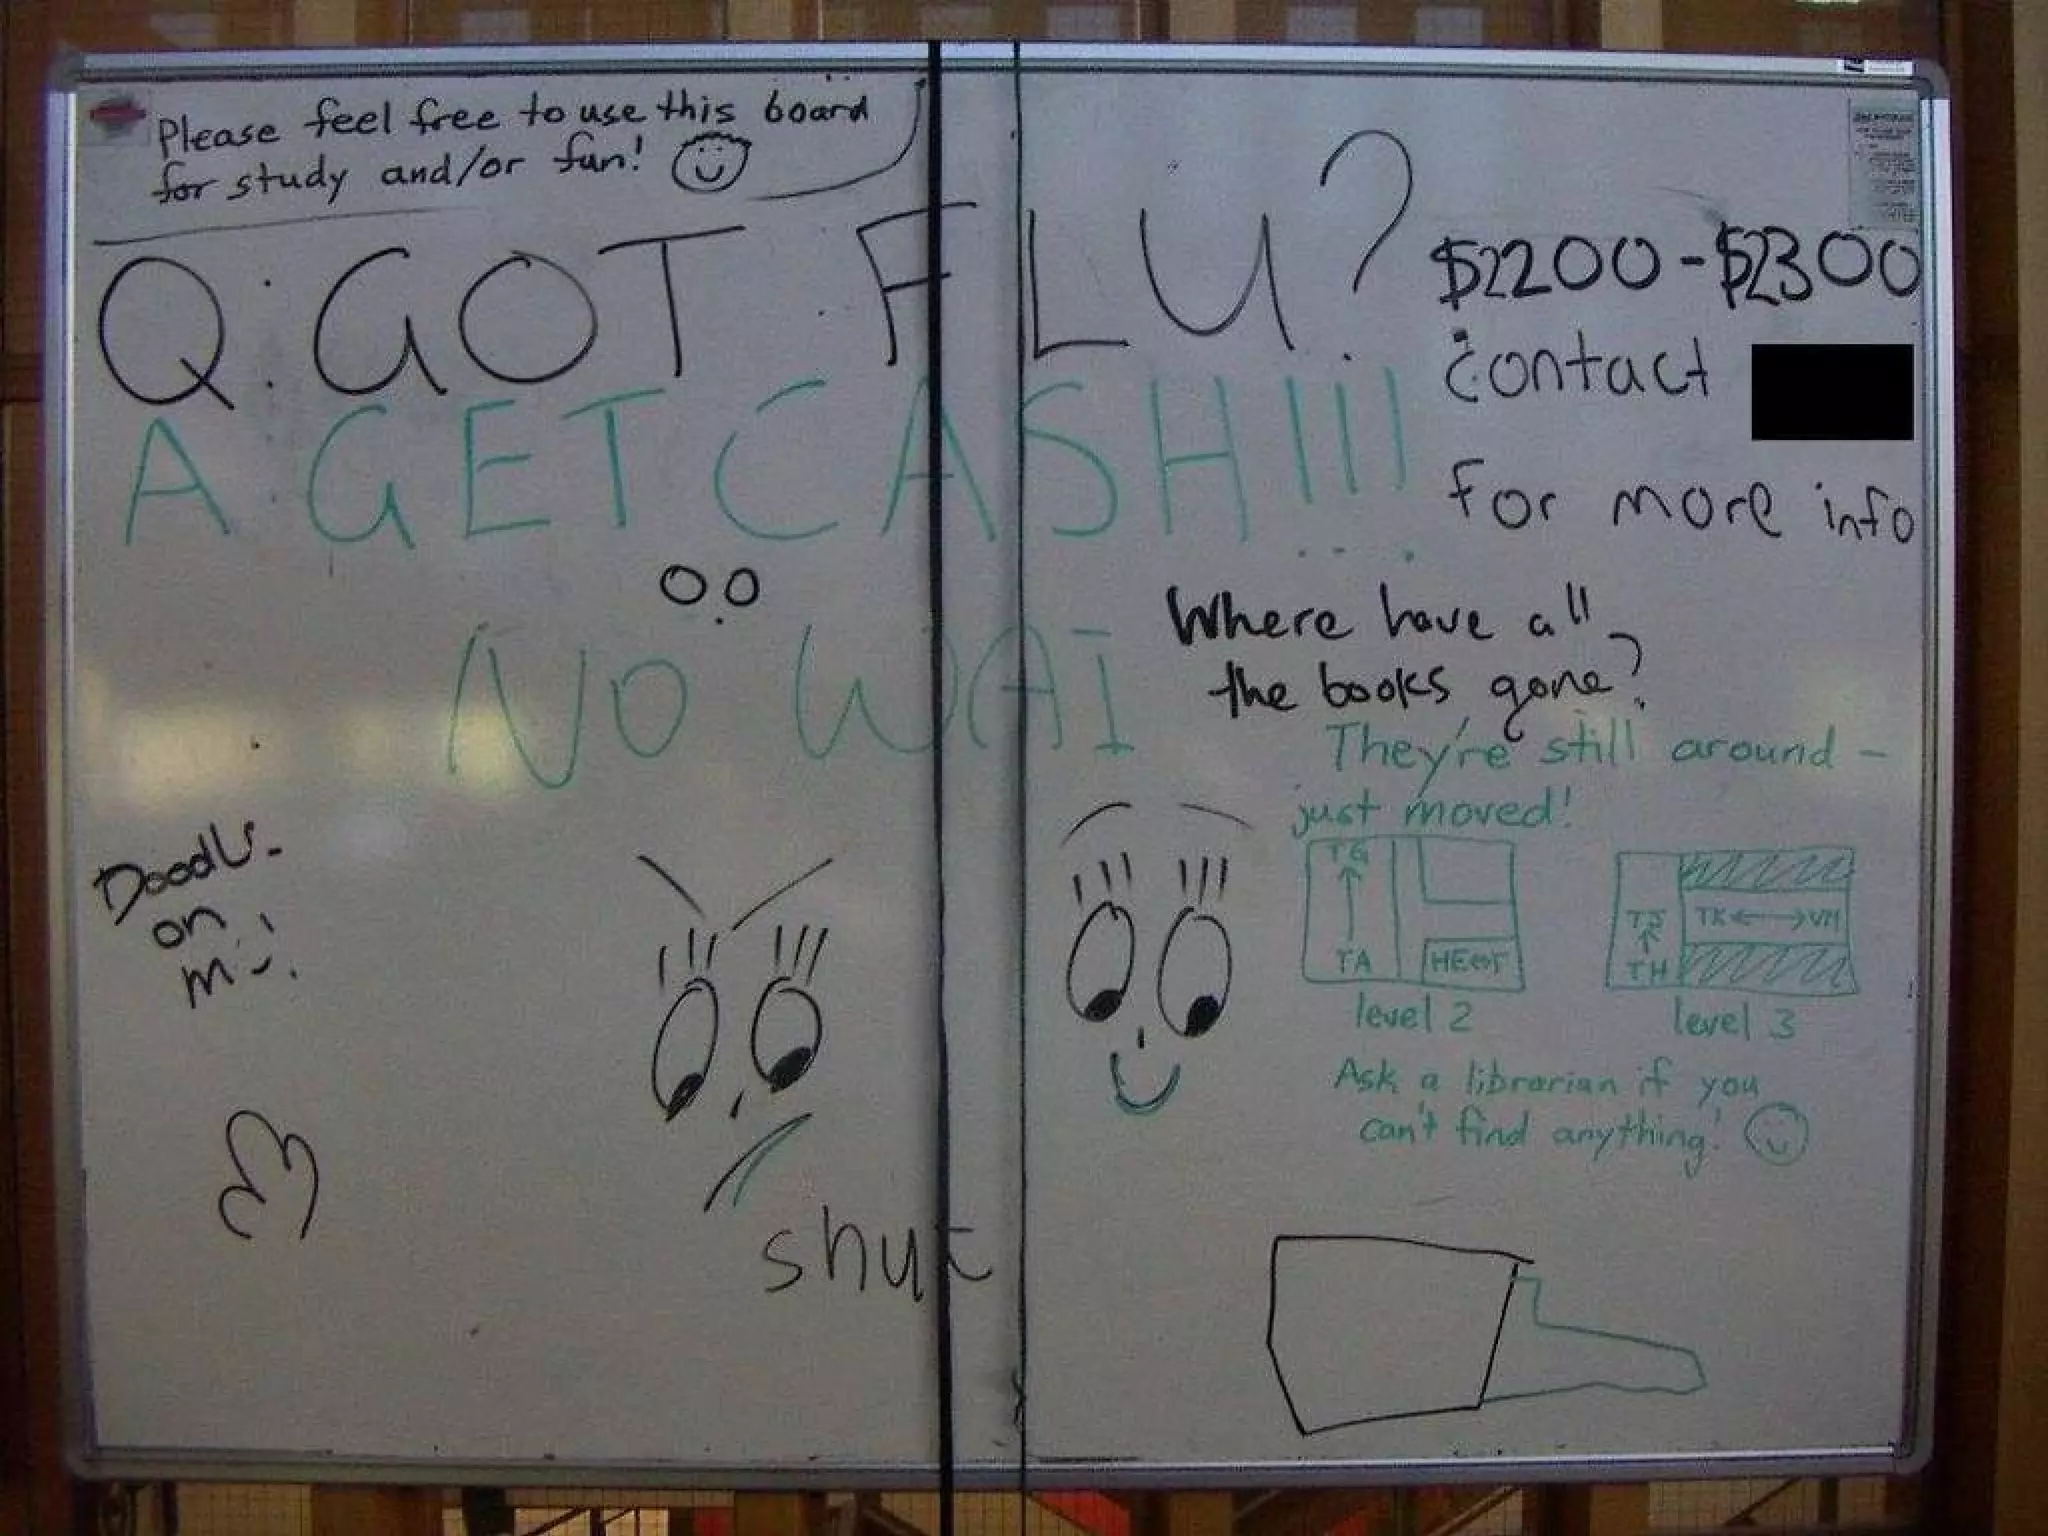 Please feel free to use this board
for study and/or fun!
Q: GOT FLU?
A: GET CASH!!!
O.O
NO WAI
$2200-$2300
contact
for more info
Where have all
the books gone?
They're still around –
just moved!
TG
TA
level 2
TJ
TH
TK ↔ VM
level 3
Ask a librarian if you
can't find anything!
Doodle
on
me!
shut